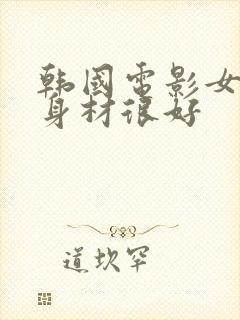 韩國电影女
身材很好
道坎罕